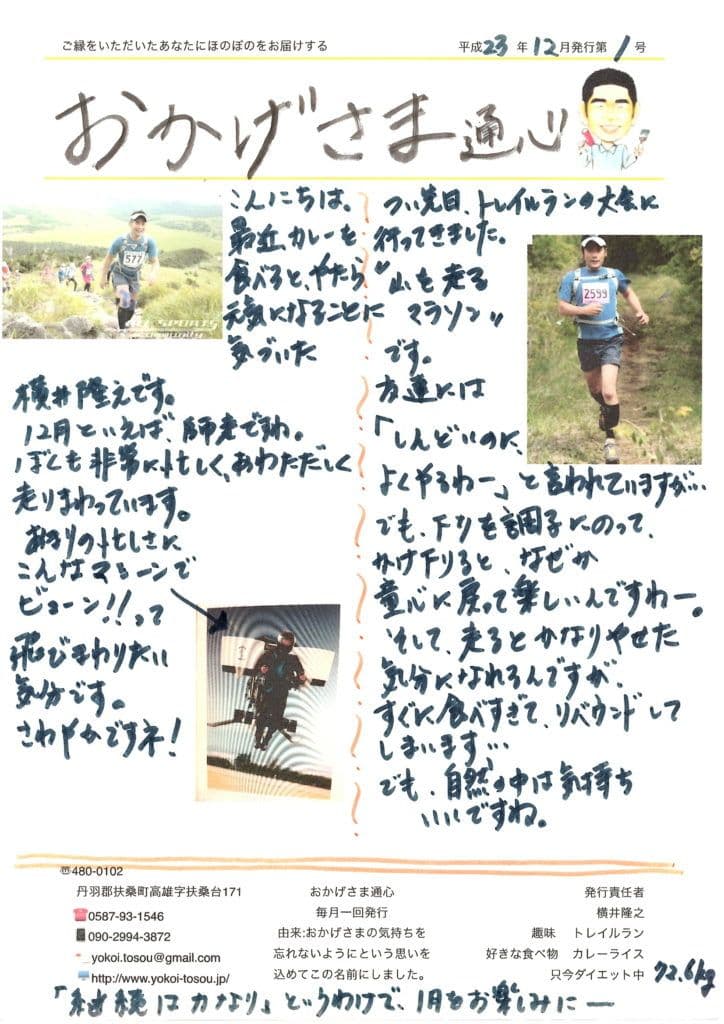 ご縁をいただいたあなたにほのぼのをお届けする
平成23年12月発行第1号
おかげさま通心
こんにちは。
最近、カレーを
食べると、やたら
元気になることに
気づいた
横井隆之です。
12月といえば、師走ですね。
ぼくも非常に忙しく、あわただしく
走りまわっています。
あまりの忙しさに
こんなマシーンで
ビューン!!って
飛びまわりたい
気分です。
さわやかですネ!
つい先日、トレイルランの大会に
行ってきました。
"山を走る
マラソン"
です。
友達には
「しんどいのに、
よくやるわー」と言われていますが…
でも、下りを調子にのって、
かけ下りると、なぜか
童心に戻って楽しいんですわー。
そして、走るとかなりやせた
気分になれるんですが、
すぐに食べすぎて、リバウンドして
しまいます…
でも、自然の中は気持ち
いいですね。
577
2599
ALL SPORTS
community
〠480-0102
丹羽郡扶桑町高雄字扶桑台171
☎0587-93-1546
090-2994-3872
yokoi.tosou@gmail.com
http://www.yokoi-tosou.jp/
おかげさま通心
毎月一回発行
由来:おかげさまの気持ちを
忘れないようにという思いを
込めてこの名前にしました。
発行責任者
横井隆之
趣味 トレイルラン
好きな食べ物 カレーライス
只今ダイエット中 72.6kg
「継続は力なり」というわけで、1月をお楽しみにー